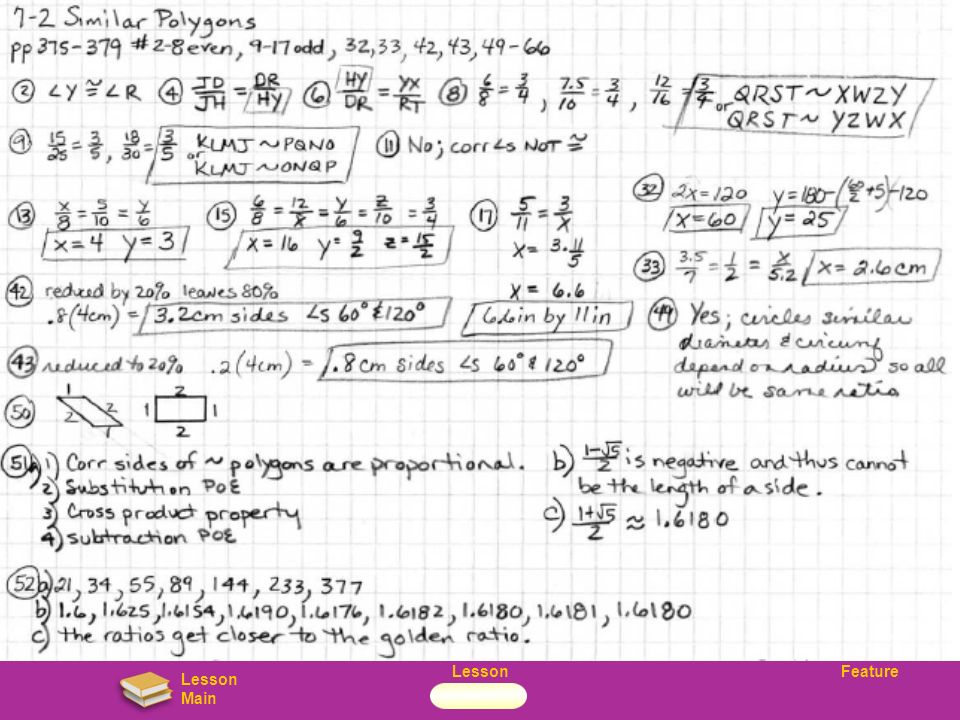 7-2 Similar Polygons
pp 375-379 #2-8 even, 9-17 odd, 32, 33, 42, 43, 49-66
② ∠Y ≅ ∠R ④ JD/JH = DR/HY ⑥ HY/DR = YX/RT ⑧ 6/8 = 3/4, 7.5/10 = 3/4, 12/16 = 3/4 QRST ~ XWZY
or QRST ~ YZWX
⑨ 15/25 = 3/5, 18/30 = 3/5 KLMJ ~ PQNO
or KLMJ ~ ONQP
⑪ No; corr ∠s NOT ≅
⑬ x/8 = 5/10 = y/6
x=4 y=3
⑮ 6/8 = 12/x = y/6 = z/10 = 3/4
x=16 y=9/2 z=15/2
⑰ 5/11 = 3/x
x= 3·11/5
x = 6.6
6.6in by 11in
㉜ 2x=120 y=180-(60/2+5)-120
x=60 y=25
㉝ 3.5/7 = 1/2 = x/5.2 x=2.6cm
㊷ reduced by 20% leaves 80%
.8(4cm) = 3.2cm sides ∠s 60° & 120°
㊸ reduced to 20% .2(4cm) = .8cm sides ∠s 60° & 120°
㊾ Yes; circles similar
diameter & circumf
depend on radius so all
will be same ratio
㊿ 1 2 2 1 2 1 1 2
51a) 1) Corr sides of ~ polygons are proportional.
2) Substitution POE
3) Cross product property
4) subtraction POE
b) 1-√5/2 is negative and thus cannot
be the length of a side.
c) 1+√5/2 ≈ 1.6180
52a) 21, 34, 55, 89, 144, 233, 377
b) 1.6, 1.625, 1.6154, 1.6190, 1.6176, 1.6182, 1.6180, 1.6181, 1.6180
c) the ratios get closer to the golden ratio.
Lesson
Main
Lesson
Feature